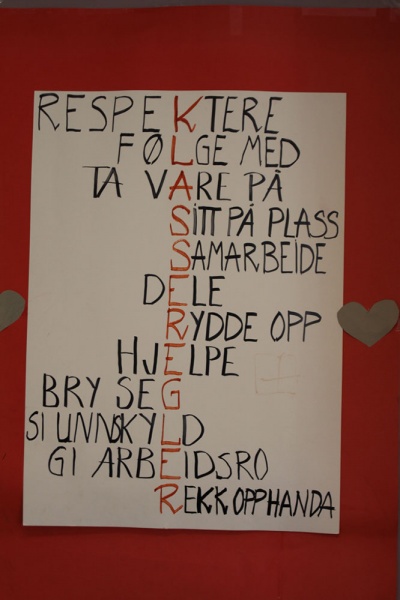 RESPEKTERE
FØLGE MED
TA VARE PÅ
SITT PÅ PLASS
SAMARBEIDE
DELE
RYDDE OPP
HJELPE
BRY SEG
SI UNNSKYLD
GI ARBEIDSRO
REKK OPP HANDA